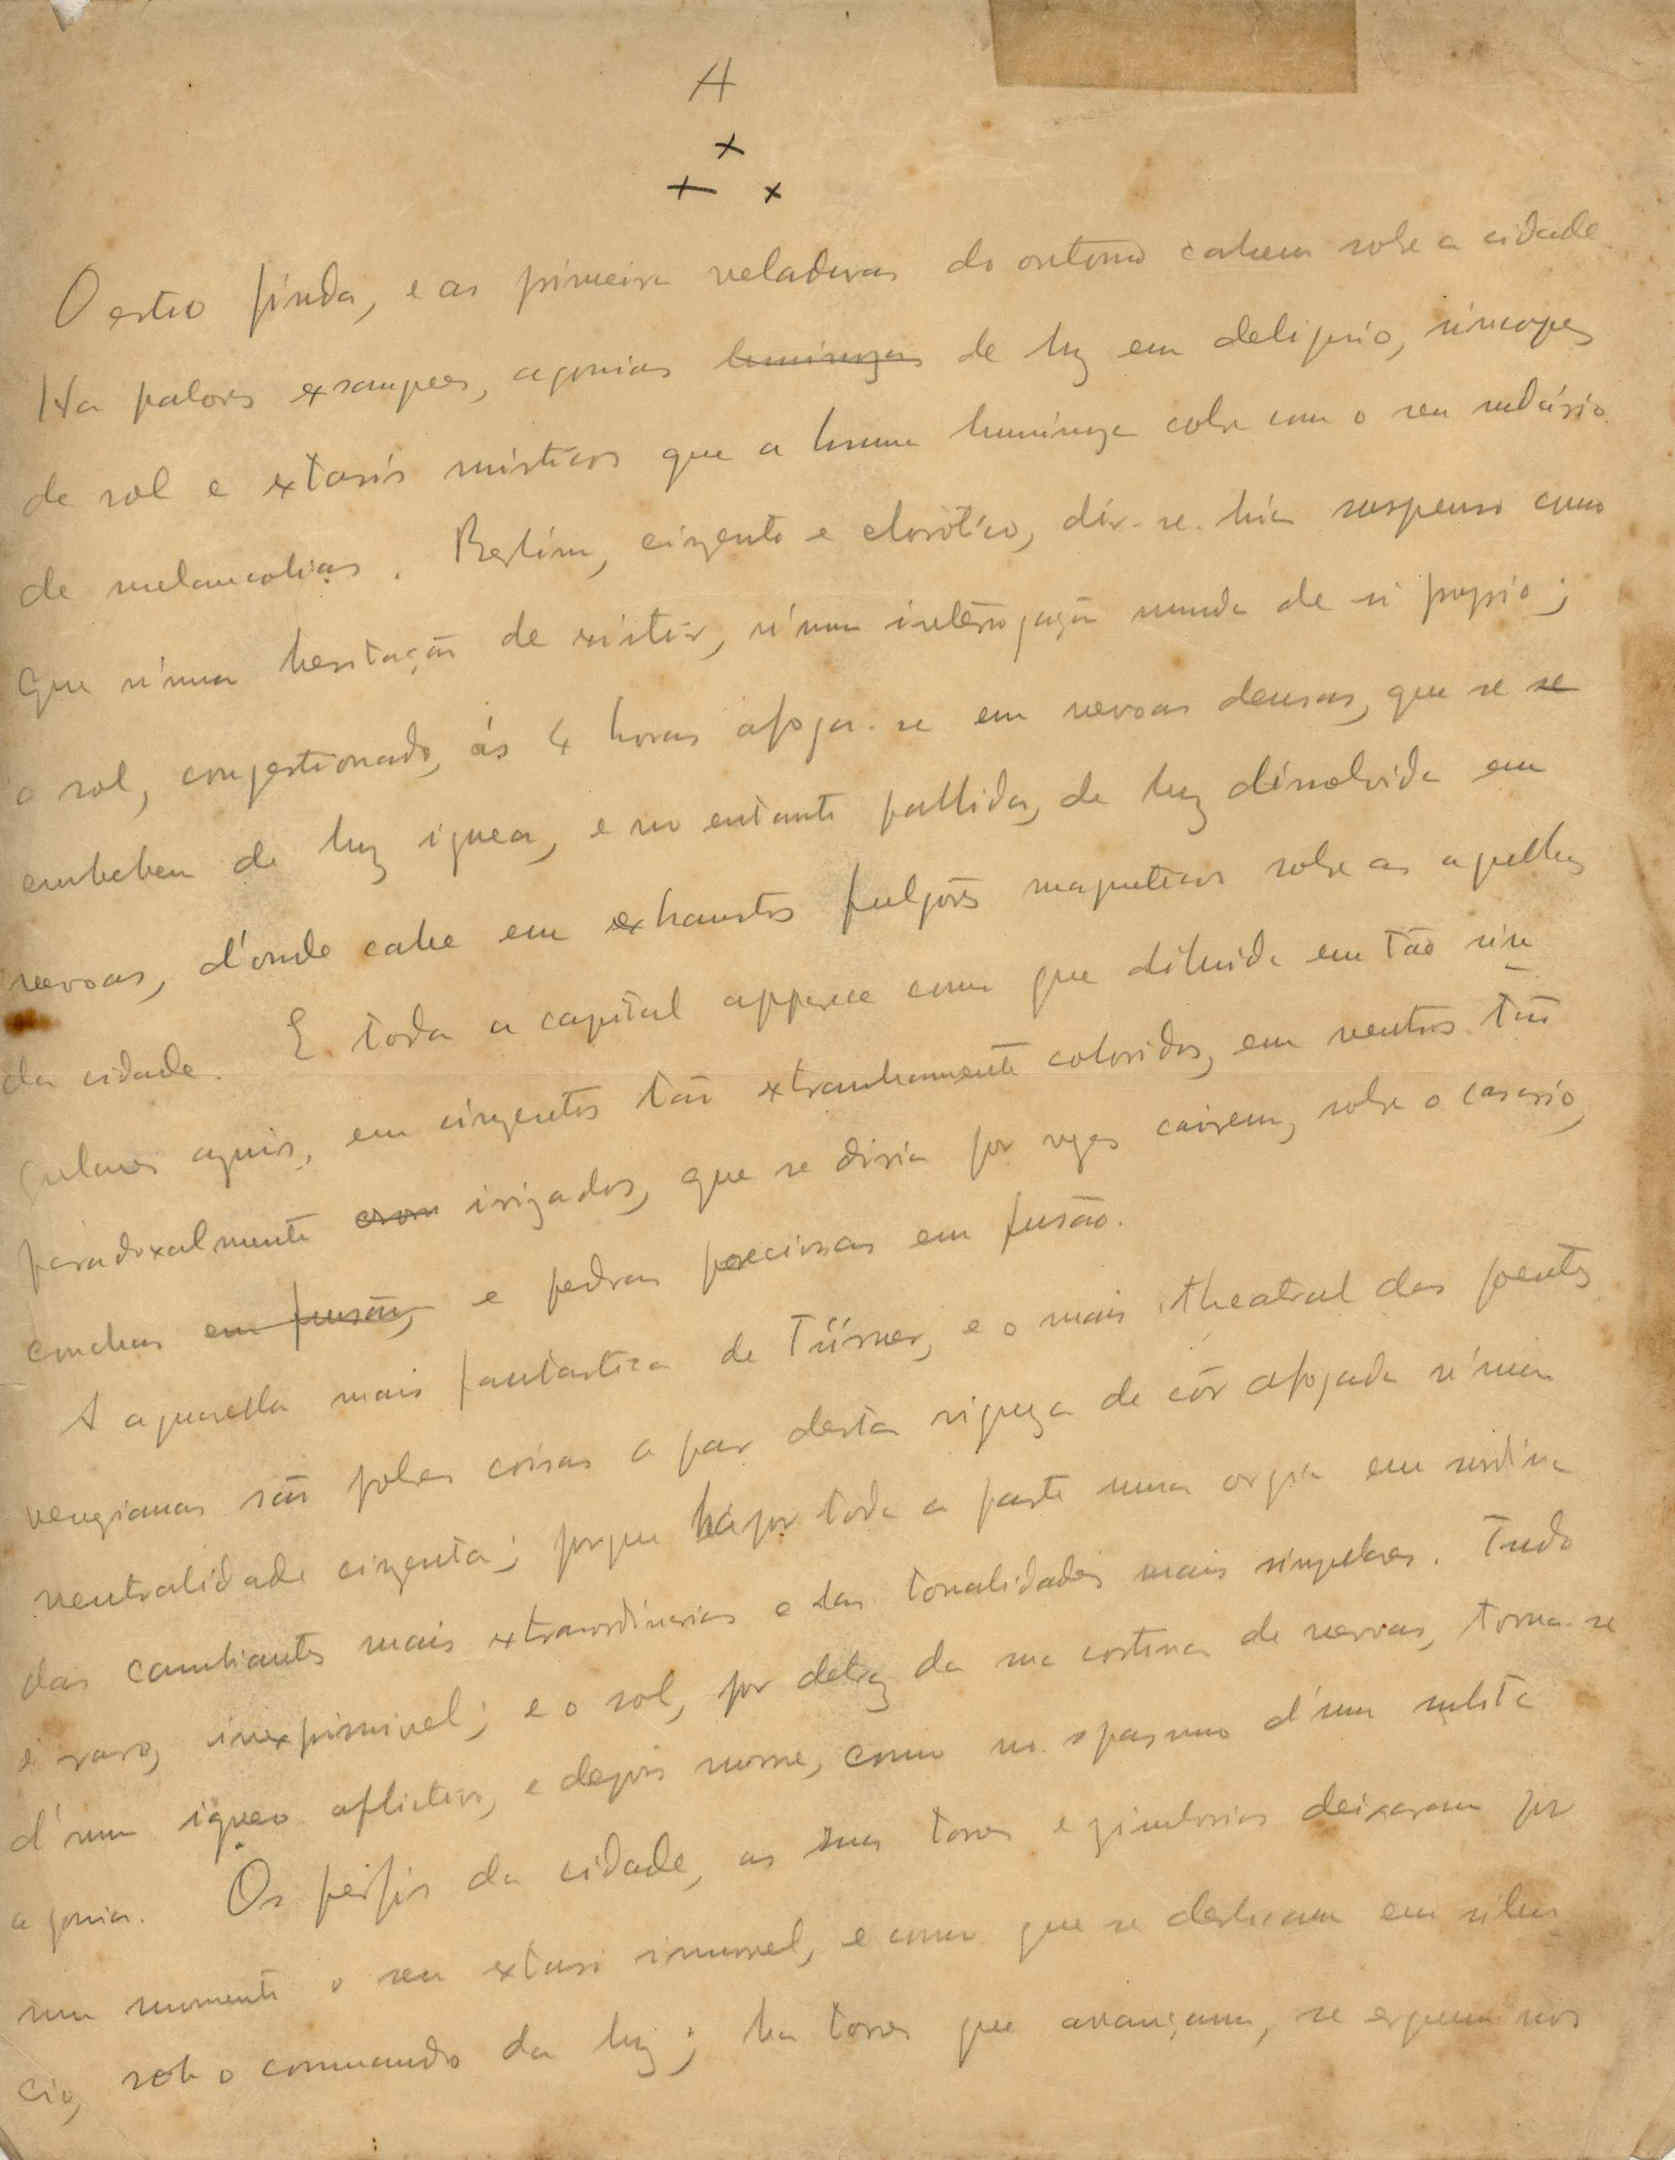 A
+
+ x
O estio finda, e as primeiras veladuras do outomno cahem sobre a cidade.
Ha palores exsangues, agonias luminozas de luz em deliquio, sincopes
de sol e extasis misticos que a bruma luminoza cobre com o seu sudário
de melancolias. Berlim, cinzento e clorótico, dir-se-hia suspenso como
que n'uma hesitação de existir, n'uma interrogação muda de si proprio;
o sol, congestionado, ás 4 horas afoga-se em nevoas densas, que se se
embebem de luz ignea, e no entanto pallida, de luz dissolvida em
nevoas, d'onde cahe em exhaustos fulgores magneticos sobre as agulhas
da cidade. E toda a capital apparece como que diluida em tão sin
gulares azues, em cinzentos tão extranhamente coloridos, em neutros tão
paradoxalmente irizados, que se diria por vezes cairem, sobre o casario,
conchas em fusão, e pedras preciosas em fusão.
A aguarella mais fantastica de Türner, e o mais theatral dos poentes
venezianos são pobres coisas a par desta riqueza de côr afogada n'uma
neutralidade cinzenta; porque há por toda a parte uma orgia em surdina
das cambiantes mais extraordinarias e das tonalidades mais singulares. Tudo
é raro, inexprimivel; e o sol, por detraz da sua cortina de nevoas, torna-se
d'um igneo aflictivo, e depois morre, como no espasmo d'uma subita
agonia. Os perfis da cidade, as suas torres e zimborios deixaram por
um momento o seu extasi immovel, e como que se deslocam em silen
cio, sob o commando da luz; ha torres que avançam, se erguem nos